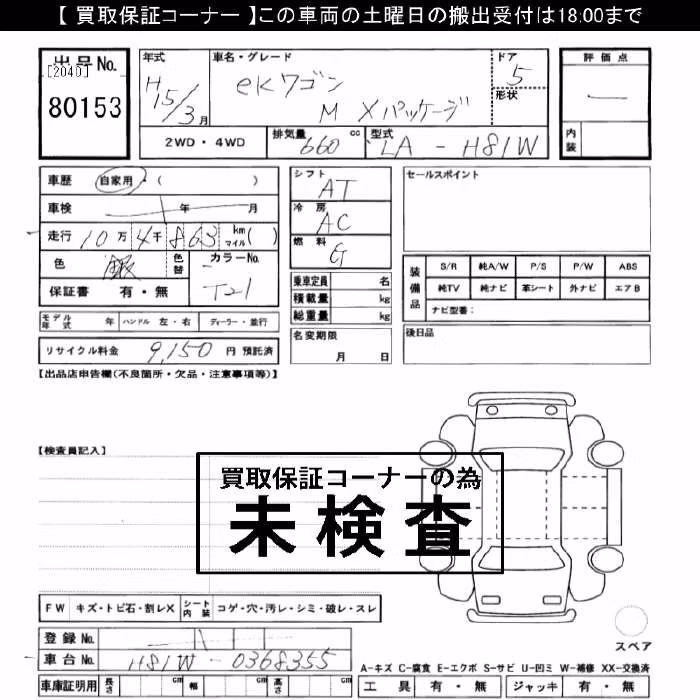 【 買取保証コーナー 】この車両の土曜日の搬出受付は18:00まで
出品No.
[2040]
80153
年式
H15/3月
車名・グレード
ekワゴン
M Xパッケージ
ドア
5
形状
評価点
内装
2WD・4WD
排気量 660 cc
型式 LA - H81W
車歴 自家用・( )
車検 年 月
走行 10万4千863 km マイル( )
色 銀 色替
カラーNo. T21
保証書 有・無
シフト AT
冷房 AC
燃料 G
乗車定員 名
積載量 kg
総重量 kg
セールスポイント
装備品
S/R 純A/W P/S P/W ABS
純TV 純ナビ 革シート 外ナビ エアB
ナビ型番:
モデル年式 年 ハンドル 左・右 ディーラー・並行
リサイクル料金 9,150 円 預託済
名変期限
月 日
後日品
【出品店申告欄(不良箇所・欠品・注意事項等)】
【検査員記入】
買取保証コーナーの為
未検査
FW キズ・トビ石・割レX シート内装 コゲ・穴・汚レ・シミ・破レ・スレ
登録No.
車台No. H81W-0368355
スペア
A-キズ C-腐食 E-エクボ S-サビ U-凹ミ W-補修 XX-交換済
車庫証明用 長さ cm 幅 cm 高さ cm
工具 有・無 ジャッキ 有・無